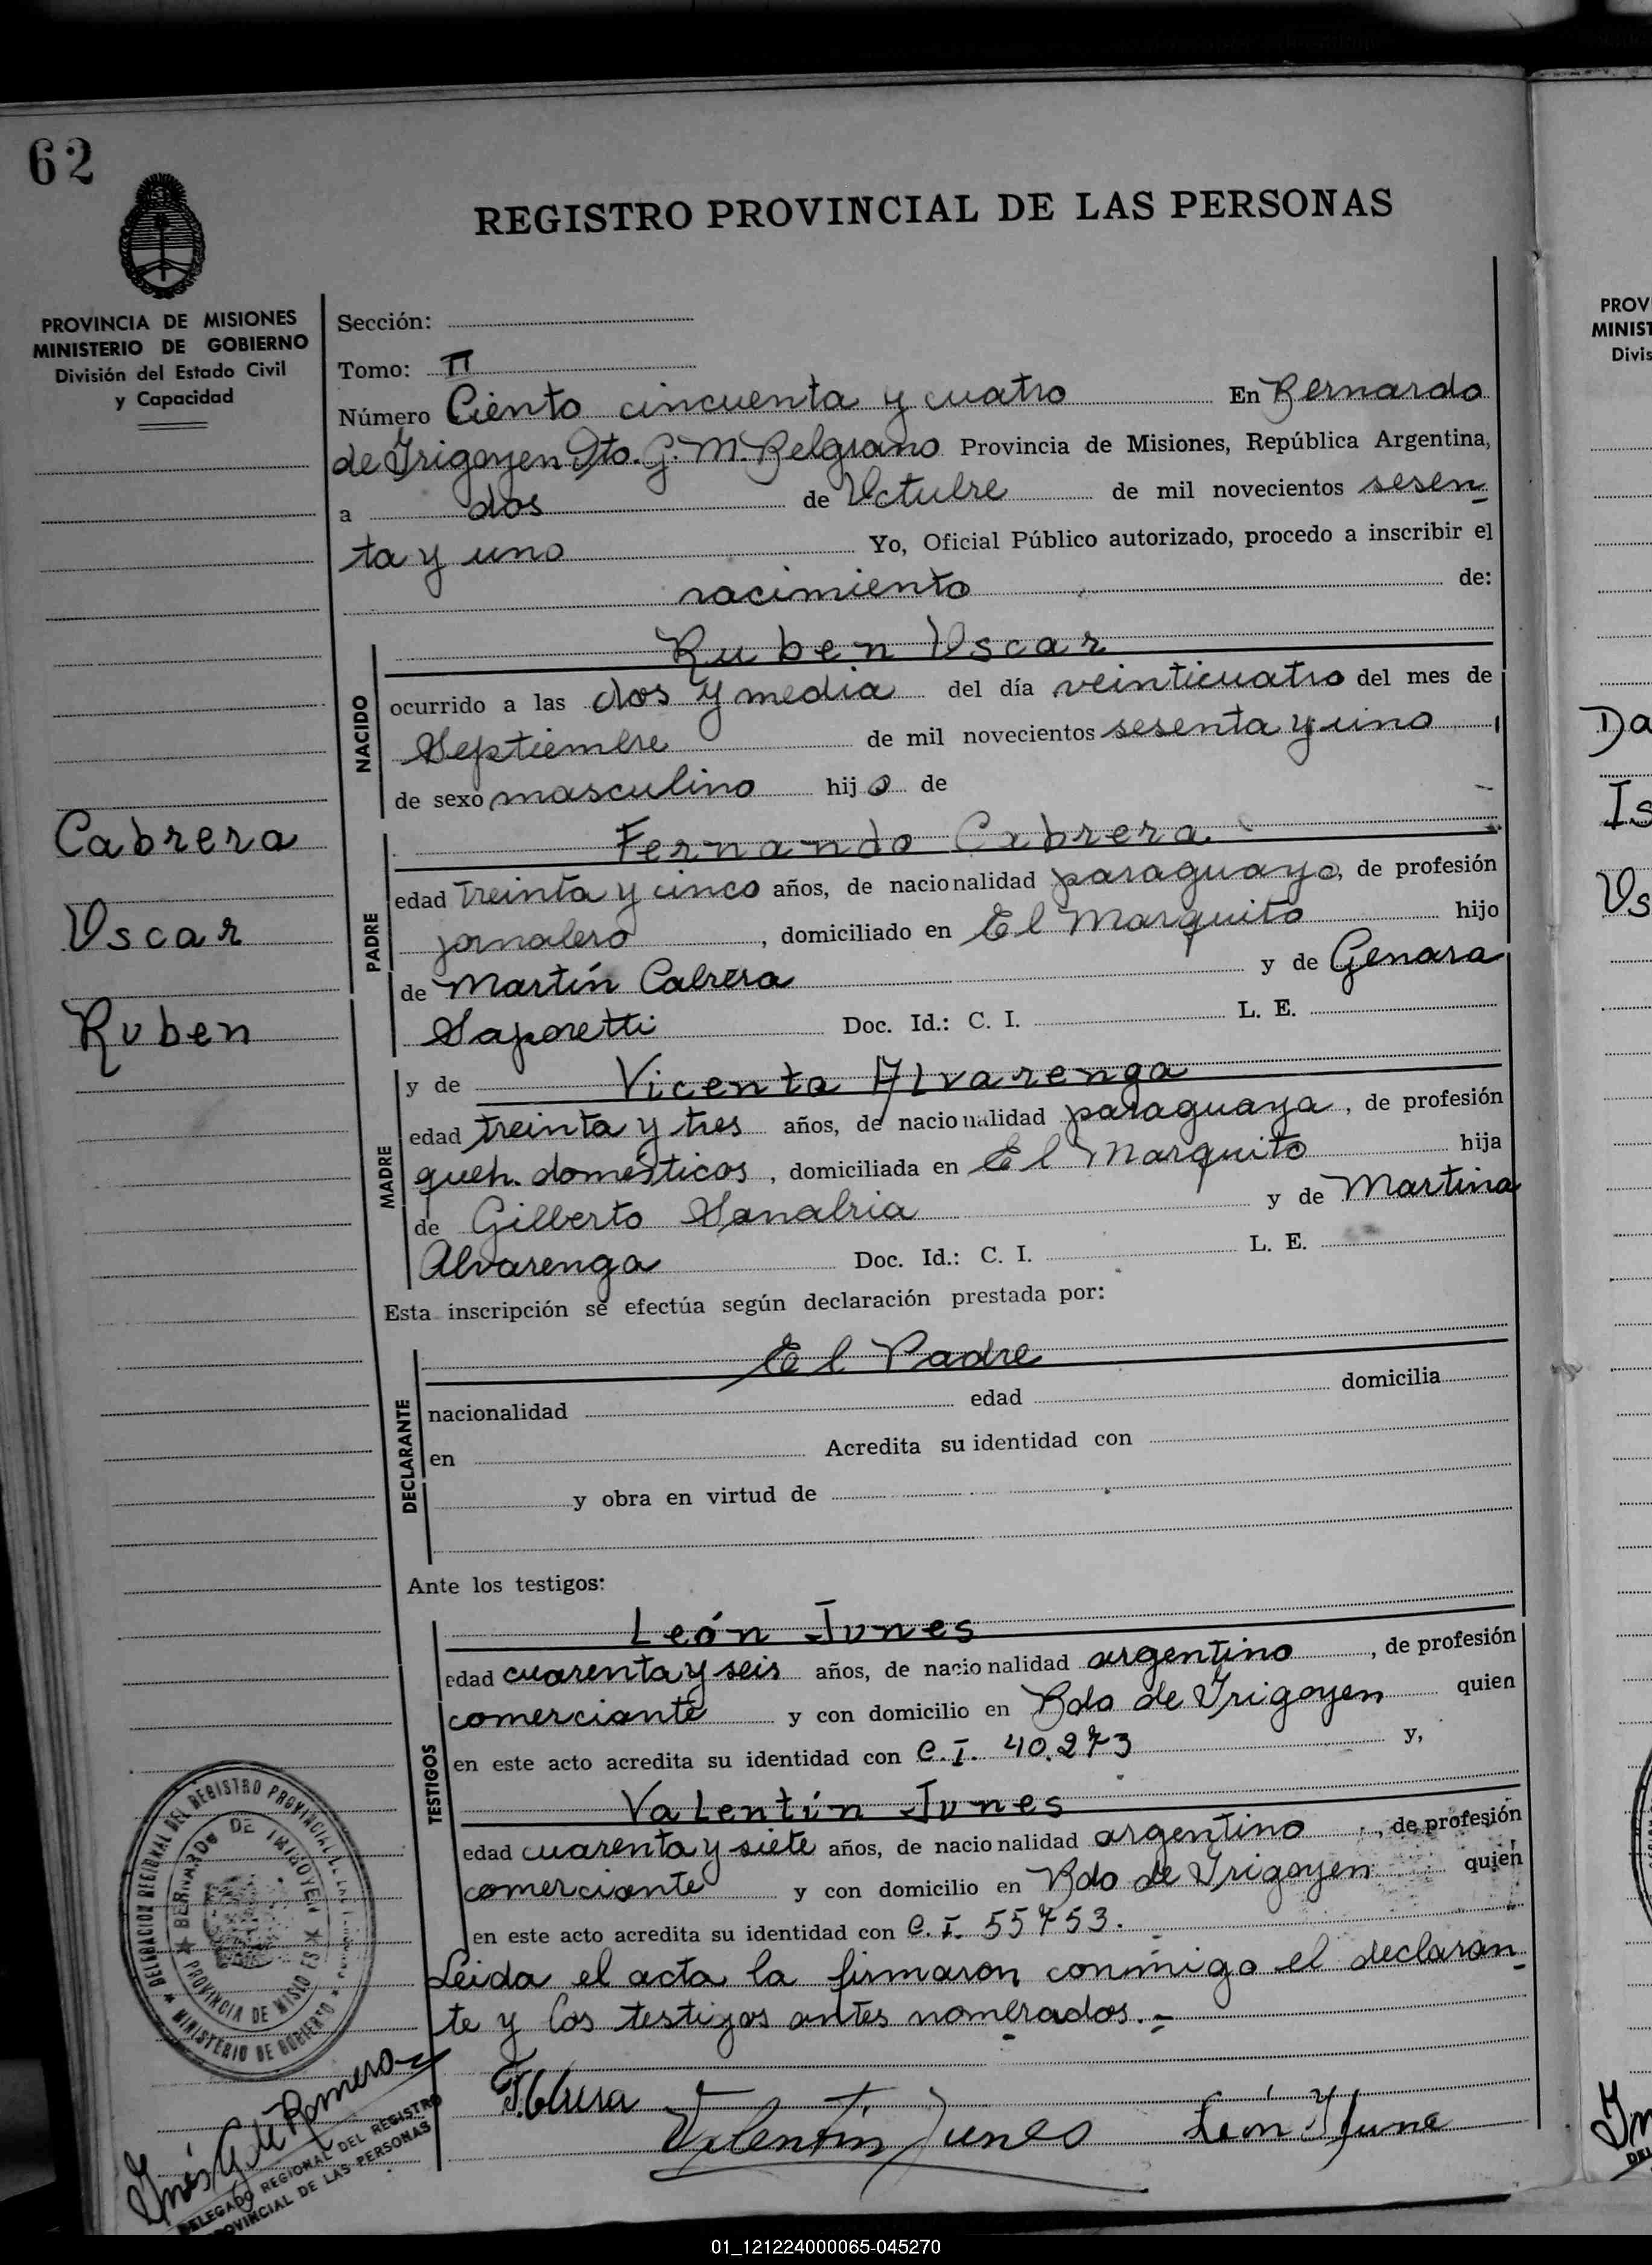 62
REGISTRO PROVINCIAL DE LAS PERSONAS
PROVINCIA DE MISIONES
MINISTERIO DE GOBIERNO
División del Estado Civil
y Capacidad
Sección:
Tomo: II
Número Ciento cincuenta y cuatro En Bernardo
de Irigoyen Dto. G. M. Belgrano Provincia de Misiones, República Argentina,
a dos de Octubre de mil novecientos sesen-
ta y uno Yo, Oficial Público autorizado, procedo a inscribir el
nacimiento de:
NACIDO
Ruben Oscar
ocurrido a las dos y media del día veinticuatro del mes de
Septiembre de mil novecientos sesenta y uno
de sexo masculino hijo de
Cabrera
Oscar
Ruben
PADRE
Fernando Cabrera
edad treinta y cinco años, de nacionalidad paraguayo, de profesión
jornalero, domiciliado en El Marquito hijo
de Martín Cabrera y de Genara
Saporetti Doc. Id.: C. I. L. E.
MADRE
y de Vicenta Alvarenga
edad treinta y tres años, de nacionalidad paraguaya, de profesión
queh. domésticos, domiciliada en El Marquito hija
de Gilberto Sanabria y de Martina
Alvarenga Doc. Id.: C. I. L. E.
Esta inscripción se efectúa según declaración prestada por:
DECLARANTE
El Padre
nacionalidad edad domicilia
en Acredita su identidad con
y obra en virtud de
Ante los testigos:
TESTIGOS
León Junes
edad cuarenta y seis años, de nacionalidad argentino, de profesión
comerciante y con domicilio en Bdo de Irigoyen quien
en este acto acredita su identidad con C.I. 40.273 y,
Valentín Junes
edad cuarenta y siete años, de nacionalidad argentino, de profesión
comerciante y con domicilio en Bdo de Irigoyen quien
en este acto acredita su identidad con C.I. 55753.
Leida el acta la firmaron conmigo el declaran-
te y los testigos antes nombrados.-
Valentín Junes León Junes
DELEGACION REGIONAL DEL REGISTRO PROVINCIAL DE LAS
BERNARDO DE IRIGOYEN
PROVINCIA DE MISIONES
MINISTERIO DE GOBIERNO
Inés G. de Romero
DELEGADO REGIONAL DEL REGISTRO
PROVINCIAL DE LAS PERSONAS
PROV
MINIST
Divis
Da
Is
Os
01_121224000065-045270